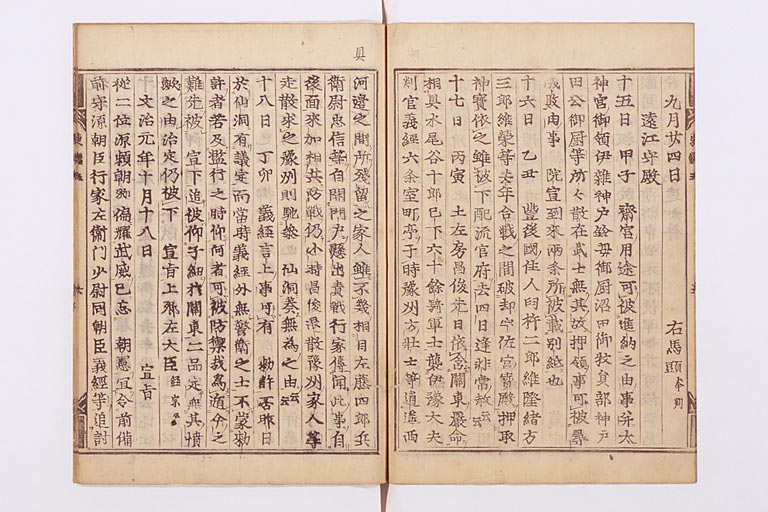 九月廿四日 右馬頭
遠江守殿
十五日 甲子 齋宮用途可被進納之由事幷太
神宮御領伊雜神戶鈴母御厨沼田御牧員部神戶
田公御厨等所々散在武士無其故押領事可被尋
成敗由事 院宣到來兩条所被載別紙也
十六日 乙丑 豐後國住人臼杵二郎維隆緒方
三郎維榮等去年合戰之間破却宇佐宮寶殿押取
神寶依之雖被下配流官府去四日逢非常赦云々
十七日 丙寅 土左房昌俊先日依含關東嚴命
相具水尾谷十郎已下六十餘騎軍士襲伊豫大夫
判官義經六条室町亭于時豫州方壯士等逍遥西
具
河邊之間所殘留之家人雖不幾相目左藤四郎兵
衛尉忠信等自開門戶懸出責戰行家傳聞此事自
後面來加相共防戰仍小時昌俊退散豫州家人等
走散求之豫州則馳參 仙洞奏無爲之由云々
十八日 丁卯 義經言上事可有 勅許否昨日
於仙洞有議定而當時義經外無警衛之士不蒙勅
許者若及濫行之時仰何者可被防禦哉爲遁今之
難先被 宣下追被仰子細於關東二品定無其憤
歟之由治定仍被下 宣旨上卿左大臣經宗
文治元年十月十八日 宣旨
從二位源賴朝卿偏耀武威已忘 朝憲宜令前備
前守源朝臣行家左衛門少尉同朝臣義經等追討